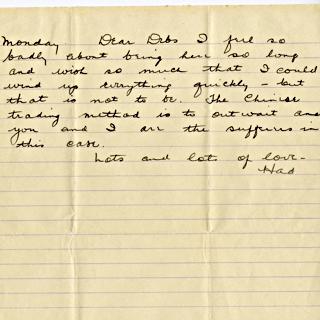 Monday Dear Debs I feel so
badly about being here so long
and wish so much that I could
wind up everything quickly - but
that is not to be. The Chinese
trading method is to outwait and
you and I are the sufferers in
this case.
Lots and lots of love-
Had